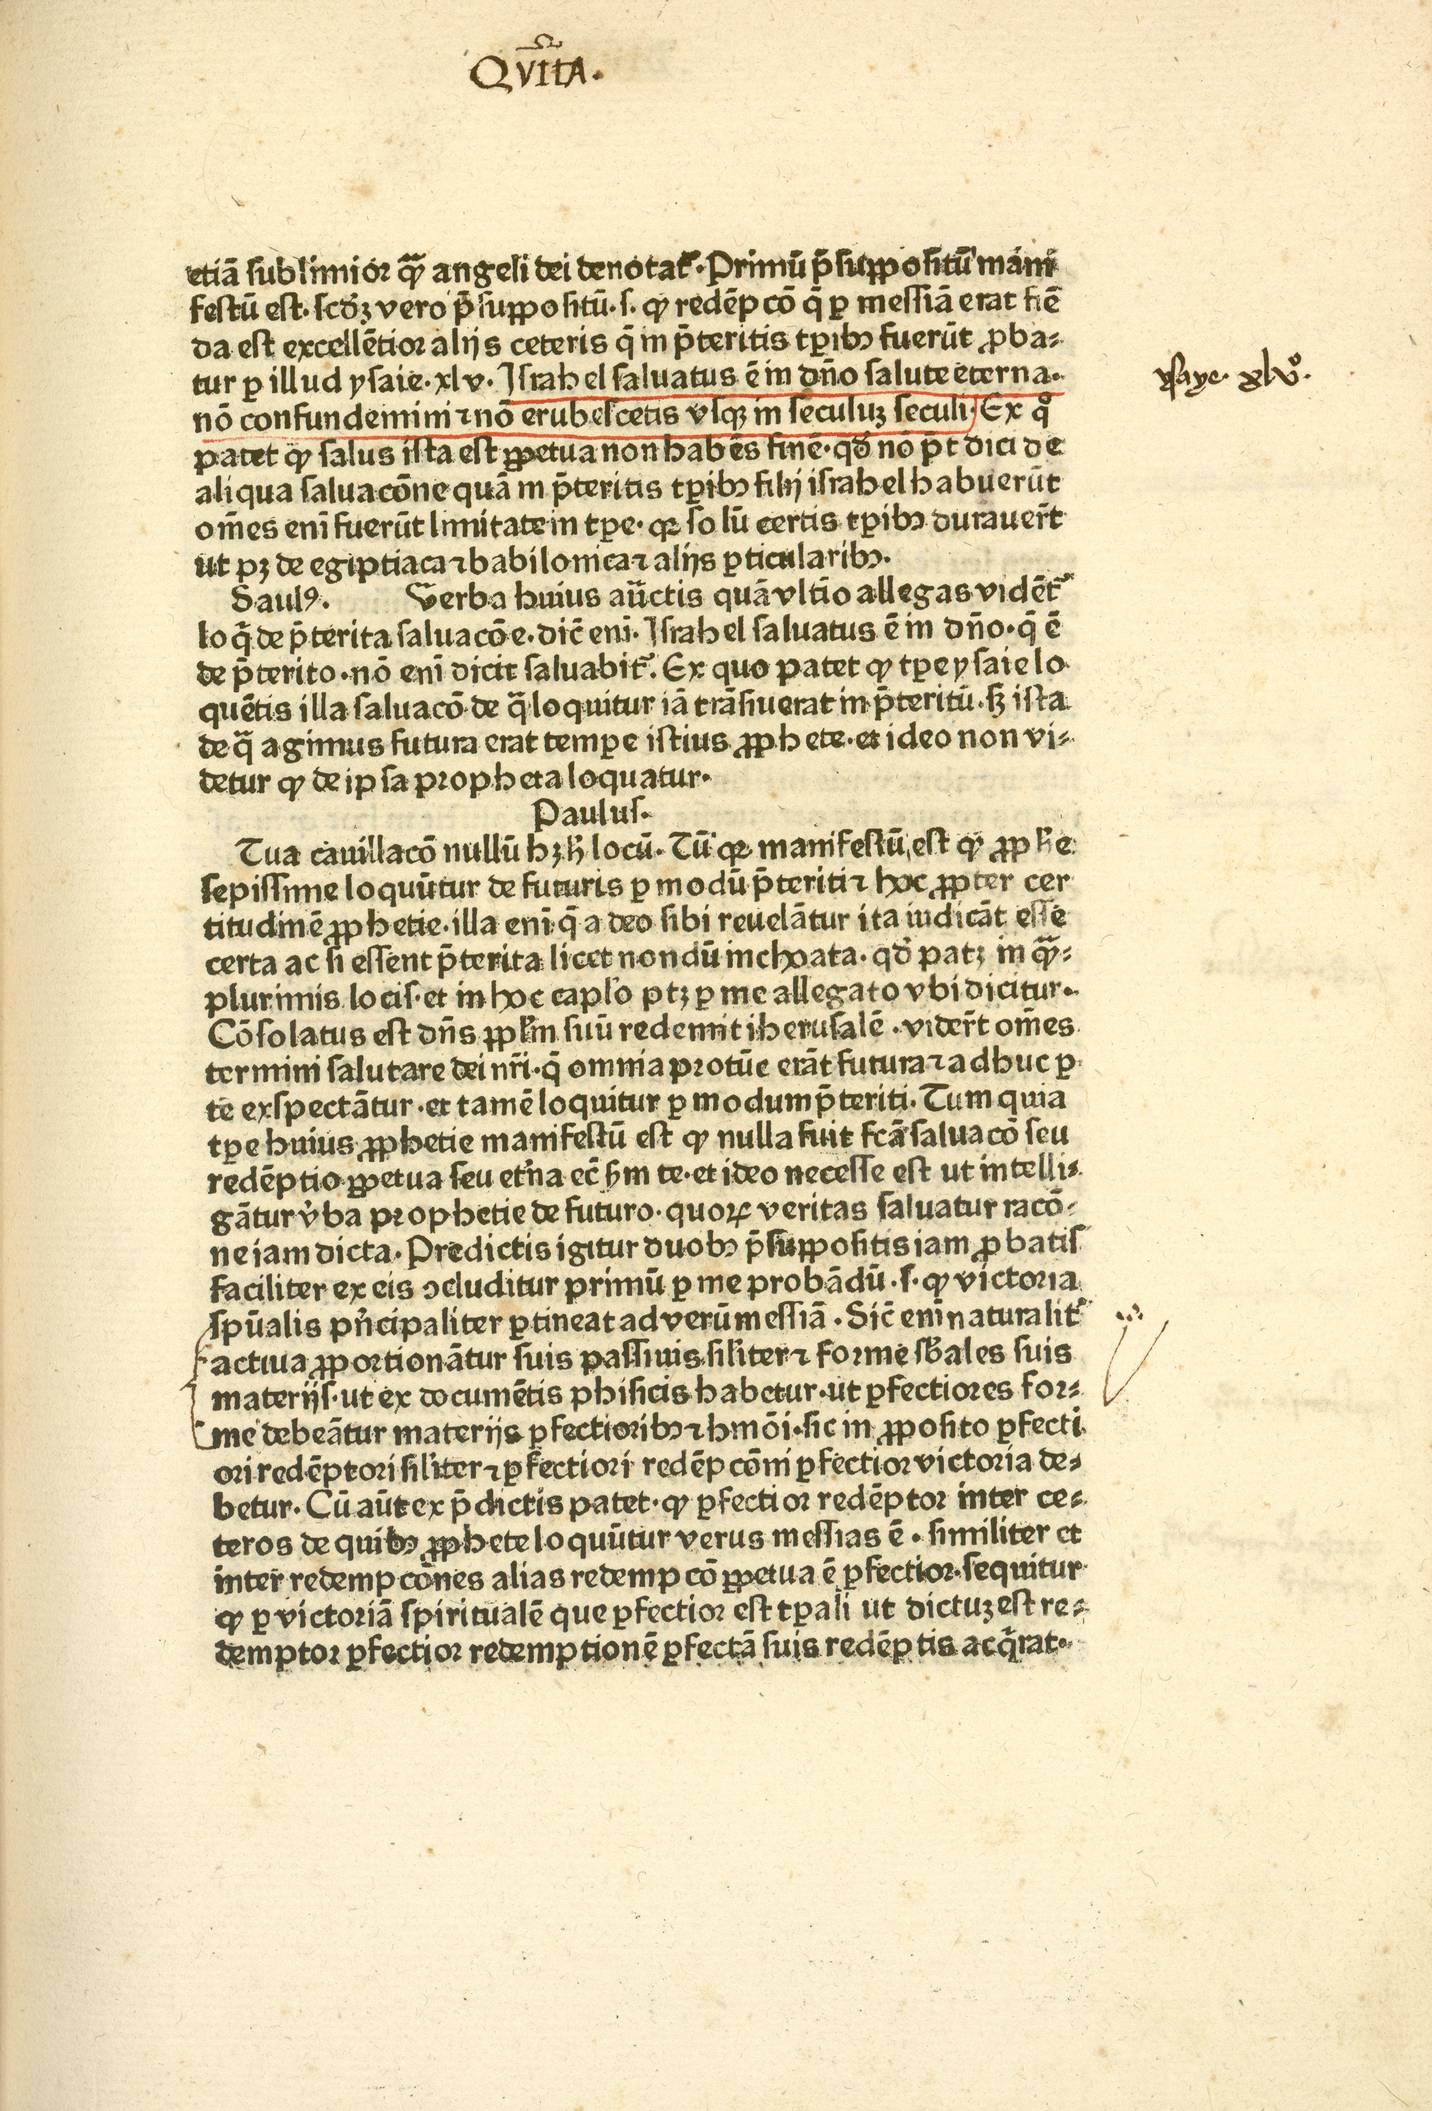 QVĪTA.
etiã sublimior q̃ꝫ angeli dei denotat᷑. Primũ p̃suppositũ mani
festũ est. scðꝫ vero p̃suppositũ. s. ꝙ redẽpcõ q̃ ꝑ messiã erat fiẽ
da est excellẽtior alijs ceteris q̃ in p̃teritis tꝑibꝰ fuerũt ꝓba⸗
tur ꝑ illud ysaie. xlv. Israhel saluatus ẽ in dño salute eterna.
ysaye. xlvᵒ.
nõ confundemini ⁊ nõ erubescetis vsqꝫ in seculuꝫ seculi. Ex qᵒ
patet ꝙ salus ista est ꝑpetua non habẽs finẽ. qð nõ p̃t dici de
aliqua saluacõne quã in p̃teritis tꝑibꝰ filij israhel habuerũt
om̃es eni᷈ fuerũt limitate in tꝑe. qꝛ solũ certis tꝑibꝰ durauer̃t
ut pꝫ de egiptiaca ⁊ babilonica ⁊ alijs ꝑticularibꝰ.
Saulꝰ. Verba huius auctis quã vltĩo allegas vidẽt᷑
loq̃ de p̃terita saluacõe. dic̃ eni᷈. Israhel saluatus ẽ in dño. q̃ ẽ
de p̃terito. nõ eni᷈ dicit saluabit᷑. Ex quo patet ꝙ tꝑe ysaie lo
quẽtis illa saluacõ de q̃ loquitur iã trãsiuerat in p̃teritũ. sꝫ ista
de q̃ agimus futura erat tempe istius ꝓphete. et ideo non vi⸗
detur ꝙ de ipsa propheta loquatur.
Paulus.
Tua cauillacõ nullũ hꝫ h̃ locũ. Tũ qꝛ manifestũ est ꝙ ꝓphe
sepissime loquũtur de futuris ꝑ modũ p̃teriti ⁊ hoc ꝓpter cer
titudinẽ ꝓphetie. illa eni᷈ q̃ a deo sibi reuelãtur ita iudicãt esse
certa ac si essent p̃terita licet nondũ inchoata. qð patꝫ in q̃ꝫ⸗
plurimis locis. et in hoc capl̃o ptꝫ ꝑ me allegato vbi dicitur.
Cõsolatus est dñs ppl̃m suũ redemit iherusalẽ. vider̃t om̃es
termini salutare dei nr̃i. q̃ omnia protũc erãt futura ⁊ adhuc ꝑ
te exspectãtur. et tamẽ loquitur ꝑ modum p̃teriti. Tum quia
tꝑe huius ꝓphetie manifestũ est ꝙ nulla fuit fcã saluacõ seu
redẽptio ꝑpetua seu et̃na ec̃ s̃m te. et ideo necesse est ut intelli⸗
gãtur v̾ba prophetie de futuro. quoꝝ veritas saluatur racõ⸗
ne iam dicta. Predictis igitur duobꝰ p̃suppositis iam ꝓbatis
faciliter ex eis ↄcluditur primũ ꝑ me probãdũ. s. ꝙ victoria
spũalis pñcipaliter ꝑtineat ad verũ messiã. Sic̃ eni᷈ naturalit᷑
actiua ꝓportionãtur suis passiuis siliter ⁊ forme sb̃ales suis
materijs. ut ex documẽtis phisicis habetur. ut ꝑfectiores for⸗
me debeãtur materijs ꝑfectioribꝰ ⁊ hmõi. sic in ꝓposito ꝑfecti
ori redẽptori siliter ⁊ ꝑfectiori redẽpcõni ꝑfectior victoria de⸗
betur. Cũ aũt ex p̃dictis patet. ꝙ ꝑfectior redẽptor inter ce⸗
teros de quibꝰ ꝓphete loquũtur verus messias ẽ. similiter et
inter redempcõnes alias redempcõ ꝑpetua ẽ ꝑfectior. sequitur
ꝙ ꝑ victoriã spiritualẽ que ꝑfectior est tꝑali ut dictuꝫ est re⸗
demptor ꝑfectior redemptionẽ ꝑfectã suis redẽptis acq̃rat.